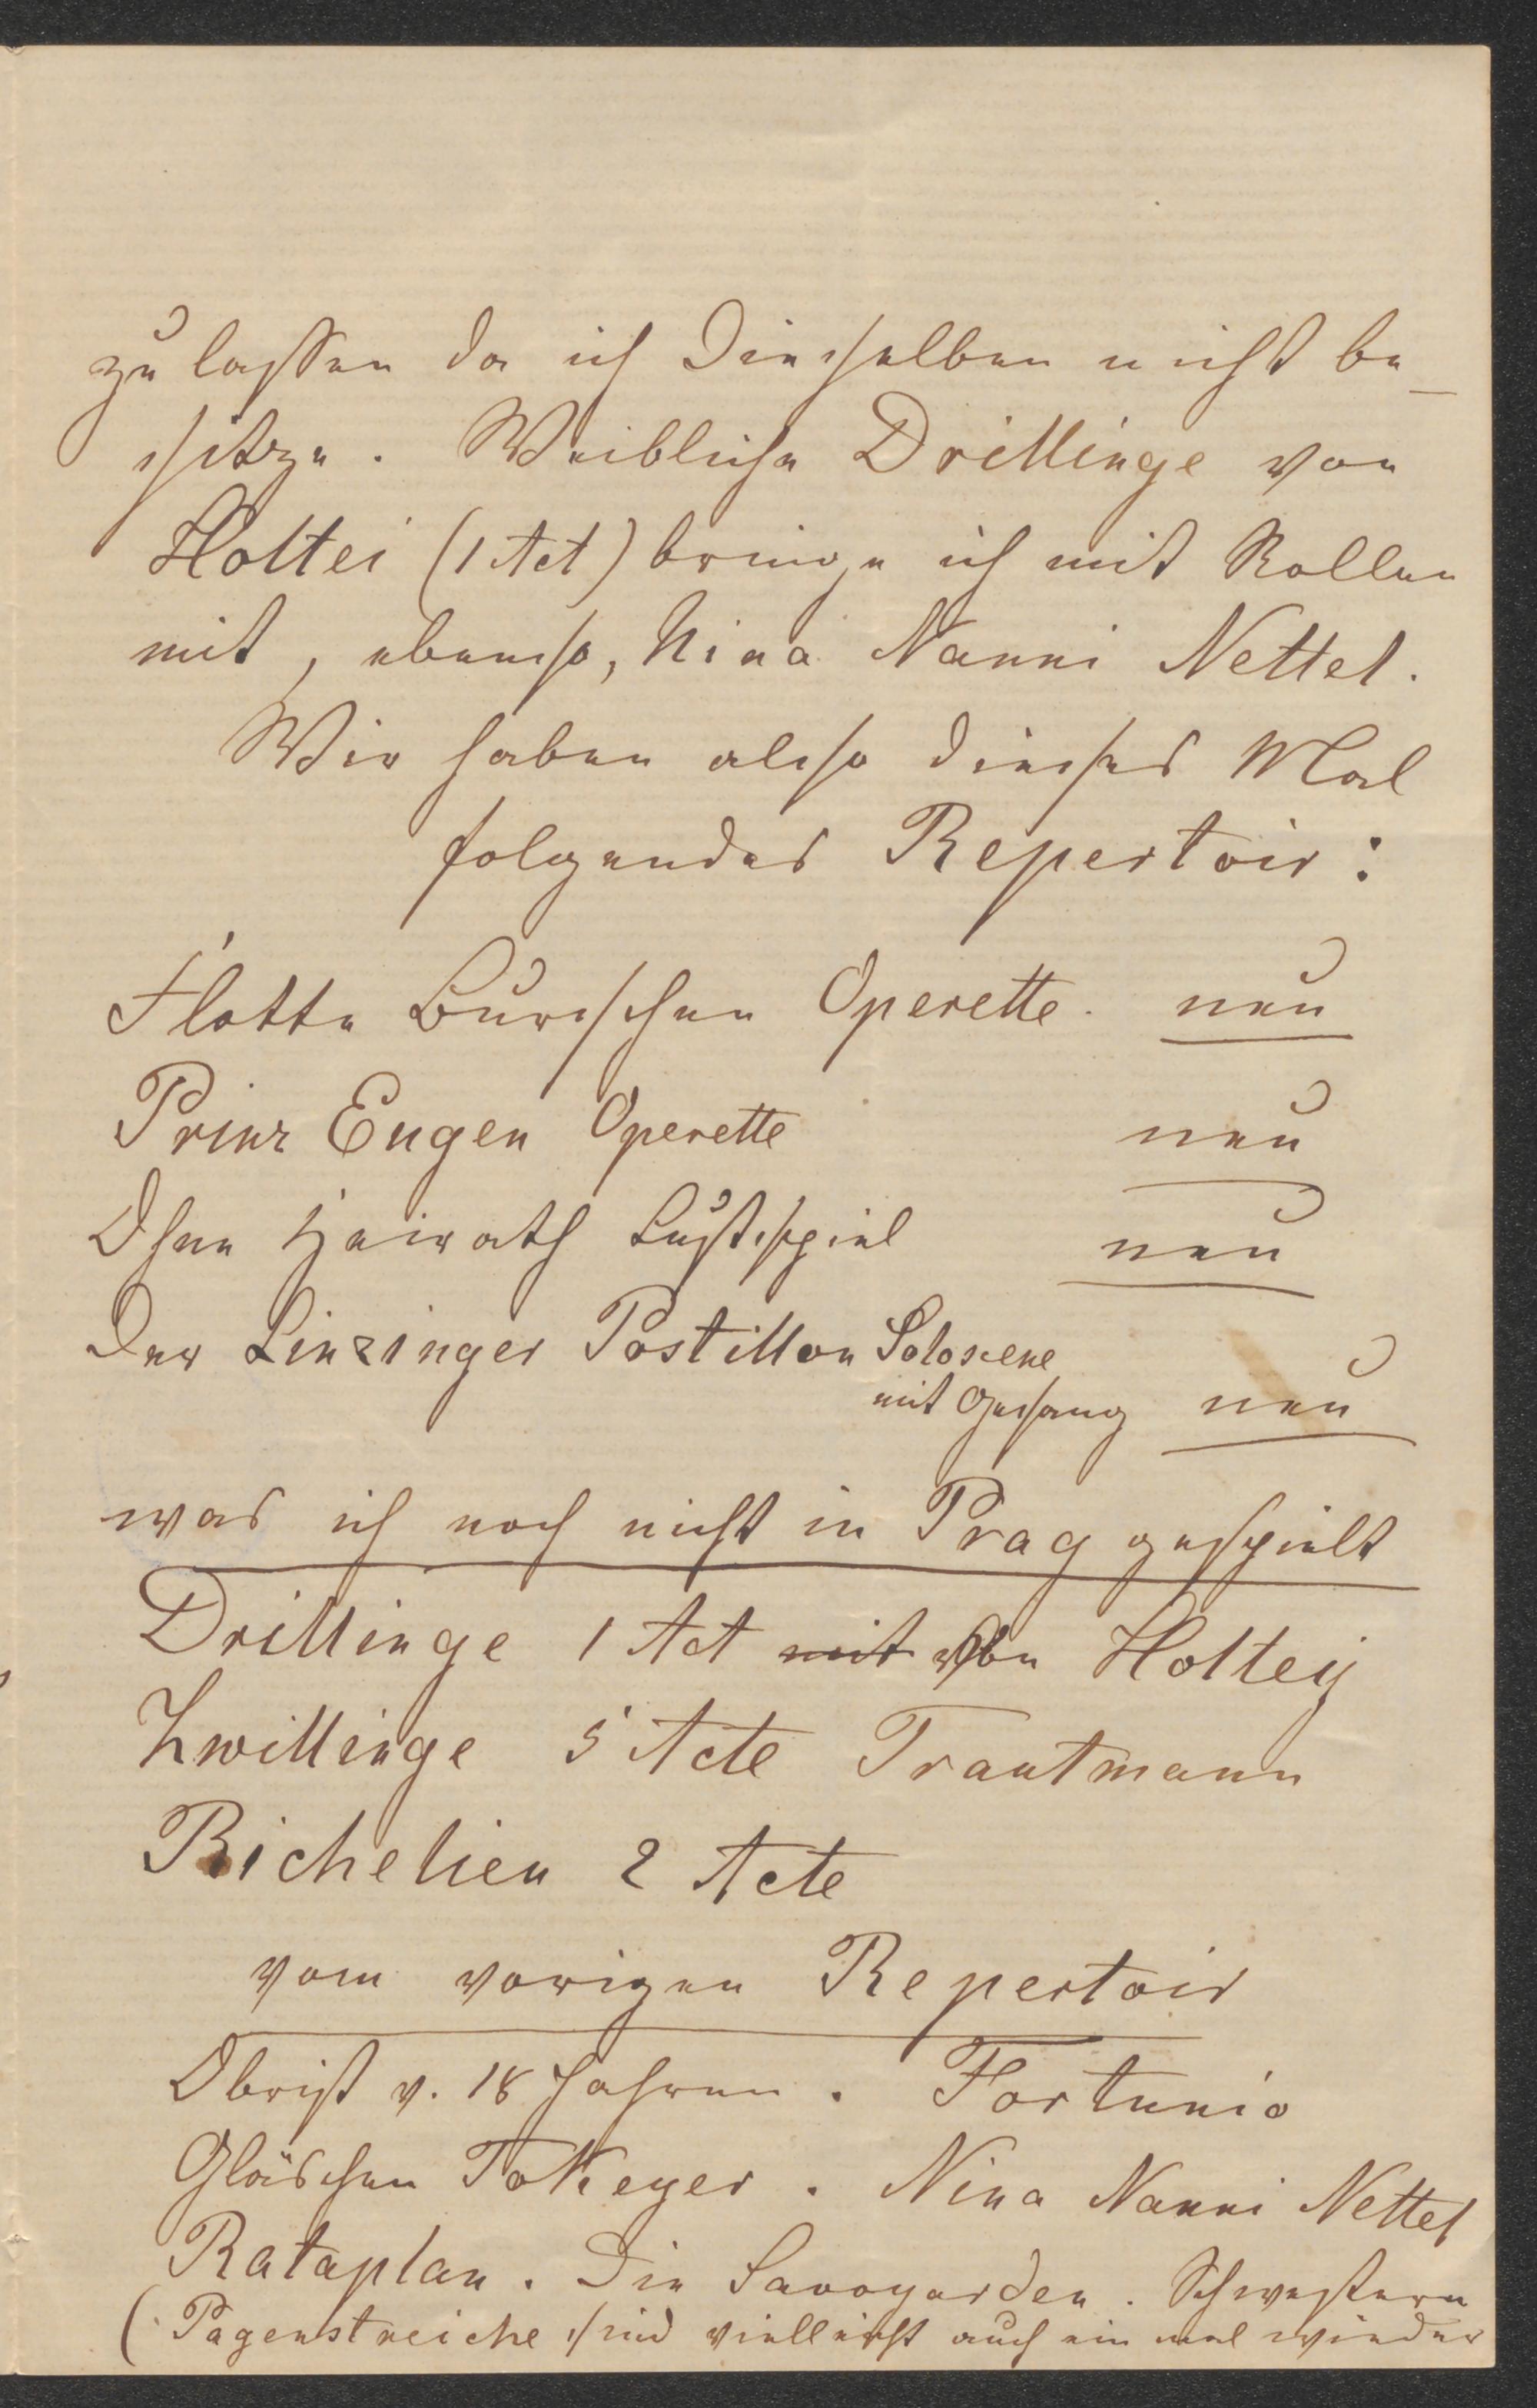 zu lassen da ich Dieselben nicht be-
sitze. Weibliche Drillinge von
Holtei (1 Act) bringe ich mit Rollen
mit, ebenso, Nina Nanni Nettel.
Wir haben also dieses Mal
folgendes Repertoir:
Flotte Burschen Operette. neu
Prinz Eugen Operette neu
Ohne Heirath Lustspiel neu
Der Linzinger Postillon Soloscene
mit Gesang neu
was ich noch nicht in Prag gespielt
Drillinge 1 Act mit von Holtey
Zwillinge 5 Acte Trautmann
Richelieu 2 Acte
vom vorigen Repertoir
Obrist v. 18 Jahren. Fortunio
Gläschen Tokeyer. Nina Nanni Nettel
Rataplan. Die Savoyarden. Schwestern
(Pagenstreiche sind vielleicht auch ein mal wieder